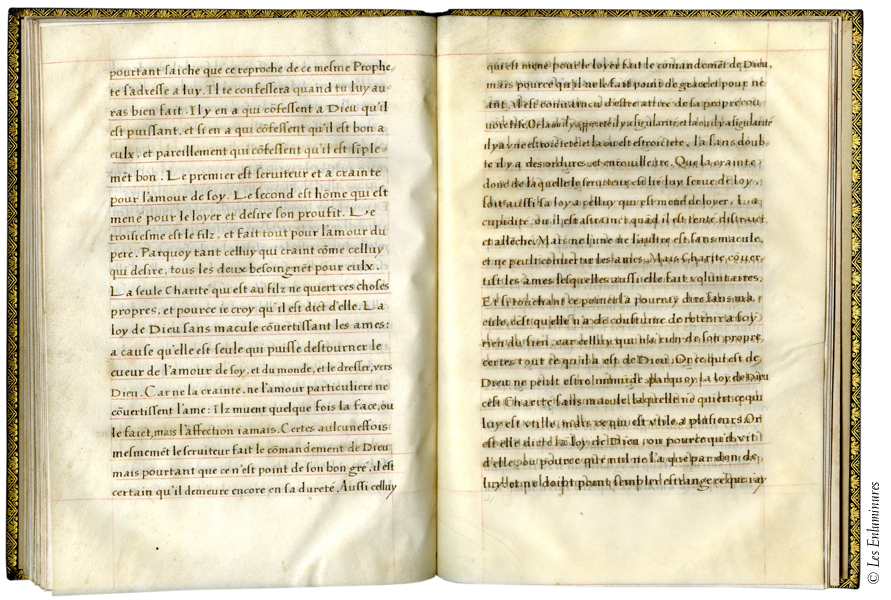 pourtant saiche que ce reproche de ce mesme Prophe-
te s'adresse a luy. Il te confessera quand tu luy au-
ras bien fait. Il y en a qui cõfessent a Dieu qu'il
est puissant, et si en a qui cõfessent qu'il est bon a
eulx, et pareillement qui cõfessent qu'il est siple-
mẽt bon. Le premier est seruiteur et a crainte
pour l'amour de soy. Le second est hõme qui est
mené pour le loyer et desire son proufit. Le
troisiesme est le filz, et fait tout pour l'amour du
pere. Parquoy tant celluy qui craint cõme celluy
qui desire, tous les deux besoingnẽt pour eulx.
La seule Charité qui est au filz ne quiert ces choses
propres, et pource ie croy qu'il est dict d'elle. La
loy de Dieu sans macule cõuertissant les ames:
a cause qu'elle est seule qui puisse destourner le
cueur de l'amour de soy, et du monde, et le dresser, vers
Dieu. Car ne la crainte, ne l'amour particuliere ne
cõuertissent l'ame: Ilz muent quelque fois la face, ou
le faict, mais l'affection iamais. Certes aulcunesfois
mesmemẽt le seruiteur fait le cõmandement de Dieu
mais pourtant que ce n'est point de son bon gré, il ẽst
certain qu'il demeure encore en sa dureté. Aussi celluy
qui est mené pour le loyer fait le cõmandemẽt de Dieu,
mais pource qu'il ne le fait point de grace et pour ne
ant, il est conuaincu d'estre attiré de sa propre cou
uoitise. Or la ou il y a propreté il y a singularité, et la ou il y a singularité
il y a vne estroicteté et la ou est estroicteté, la sans doub-
te il y a des ordures et enrouilleure. Que la crainte
donc de laquelle le seruiteur est lié luy serue de loy,
soit aussi sa loy a celluy qui est mené de loyer, La
cupidité, ou il est astrainct quãd il est tenté, distraict,
et alleché. Mais ne l'une ne l'aultre est sans macule,
et ne peult conuertir les ames. Mais Charité cõuer-
tist les ames lesquelles aussi elle fait voluntaires.
Et si touchant ce point la pourroy dire sans ma,
cule, c'est qu'elle n'a de coustume de retenir a soy
rien du sien, car celluy qui n'a rien de son propre
certes tout ce qu'il a est de Dieu. Or ce qui est de
Dieu ne peult estre inmunde parquoy la loy de Dieu
cẽst Charité sans macule laquelle ne quiert ce qui
luy est vtille, mais ce qui est vtile a plusieurs. Or
est elle dicte la loy de Dieu, ou pource qu'il vit
d'elle, ou pource que nul ne l'a que par don de
luy, et ne doibt point sembler estrange ce que i'ay
© Les Enluminures